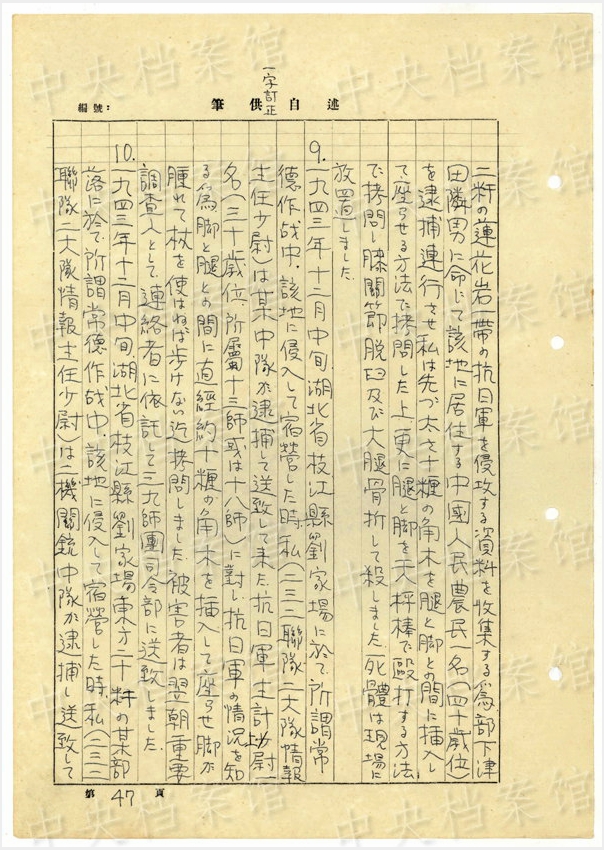 中央档案馆
一字訂正
編號：
筆供自述
二粁の蓮花岩一帶の抗日軍を侵攻する資料を收集する爲部下津
田隣男に命じて該地に居住する中國人民農民一名（四十歳位）
を逮捕連行させ私は先づ太さ十糎の角木を腿と脚との間に插入し
て座らせる方法で拷問した上更に腿と脚を天秤棒で毆打する方法
で拷問し膝關節脱臼及び大腿骨折して殺しました．死體は現場に
放置しました．
9.一九四三年十二月中旬．湖北省枝江縣劉家場に於て所謂常
德作战中．該地に侵入して宿營した時．私（二三二聯隊一大隊情報
主任少尉）は某中隊が逮捕して送致して来た抗日軍主計少尉一
名（三十歳位．所屬十三師或は十八師）に對し抗日軍の情況を知
る爲．脚と腿との間に直経約十糎の角木を插入して座らせ脚が
腫れて杖を使はねば歩けない迄拷問しました．被害者は翌朝重要
調査人として連絡者に依託して三九師團司令部に送致しました．
10.一九四三年十二月中旬．湖北省枝江縣劉家場東方二十粁の某部
落に於て所謂常德作战中．該地に侵入して宿營した時．私（二三二
聯隊一大隊情報主任少尉）は一機關銃中隊が逮捕し送致して
第 47 頁